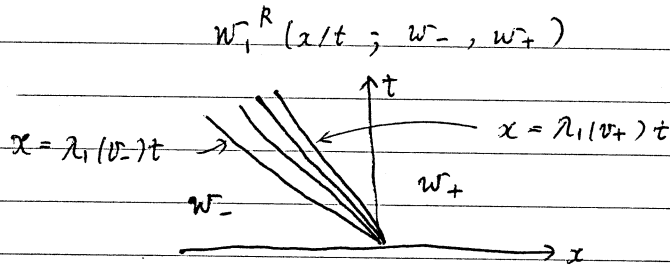 W₁ᴿ (x/t ; w₋ , w₊)
t
x = λ₁(v₋)t
x = λ₁(v₊)t
w₋
w₊
x